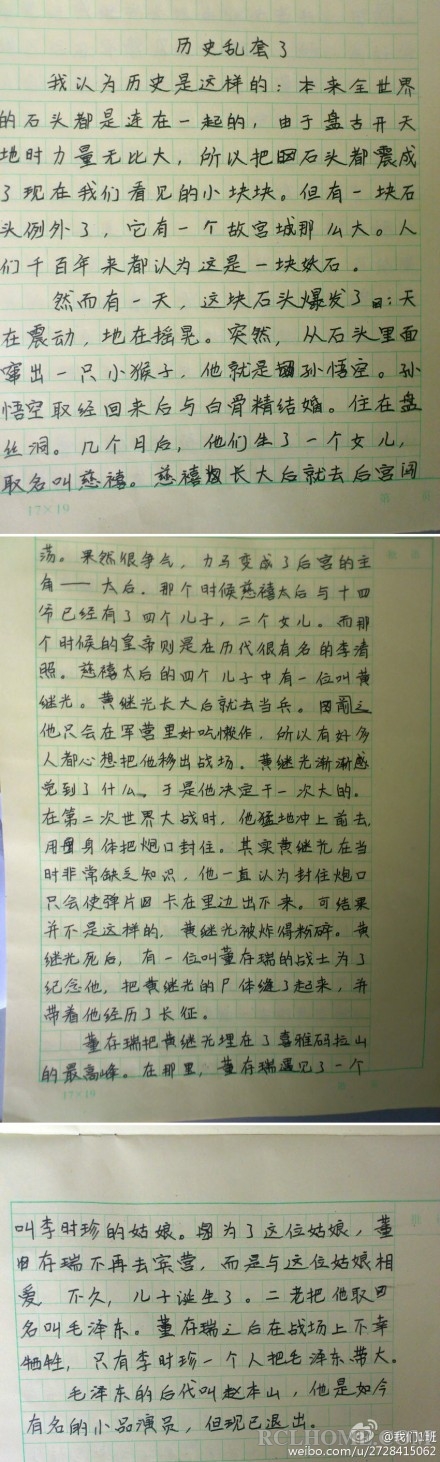 历史乱套了
我认为历史是这样的：本来全世界
的石头都是连在一起的，由于盘古开天
地时力量无比大，所以把石头都震成
了现在我们看见的小块块。但有一块石
头例外了，它有一个故宫城那么大。人
们千百年来都认为这是一块妖石。
然而有一天，这块石头爆发了：天
在震动，地在摇晃。突然，从石头里面
窜出一只小猴子，他就是孙悟空。孙
悟空取经回来后与白骨精结婚。住在盘
丝洞。几个月后，他们生了一个女儿，
取名叫慈禧。慈禧长大后就去后宫闯
17×19
荡。果然很争气，立马变成了后宫的主
角——太后。那个时候慈禧太后与十四
爷已经有了四个儿子，二个女儿。而那
个时候的皇帝则是在历代很有名的李清
照。慈禧太后的四个儿子中有一位叫黄
继光。黄继光长大后就去当兵。因之
他只会在军营里好吃懒作，所以有好多
人都心想把他移出战场。黄继光渐渐感
觉到了什么。于是他决定干一次大的。
在第二次世界大战时，他猛地冲上前去，
用身体把炮口封住。其实黄继光在当
时非常缺乏知识，他一直认为封住炮口
只会使弹片卡在里边出不来。可结果
并不是这样的，黄继光被炸得粉碎。黄
继光死后，有一位叫董存瑞的战士为了
纪念他，把黄继光的尸体缝了起来，并
带着他经历了长征。
董存瑞把黄继光埋在了喜雅码拉山
的最高峰。在那里，董存瑞遇见了一个
17×19
叫李时珍的姑娘。因为了这位姑娘，董
存瑞不再去宾营，而是与这位姑娘相
爱 不久，儿子诞生了。二老把他取
名叫毛泽东。董存瑞之后在战场上不幸
牺牲，只有李时珍一个人把毛泽东带大。
毛泽东的后代叫赵本山，他是如今
有名的小品演员，但现已退出。
@我们1班
RCLHOME.COM
weibo.com/u/2728415062